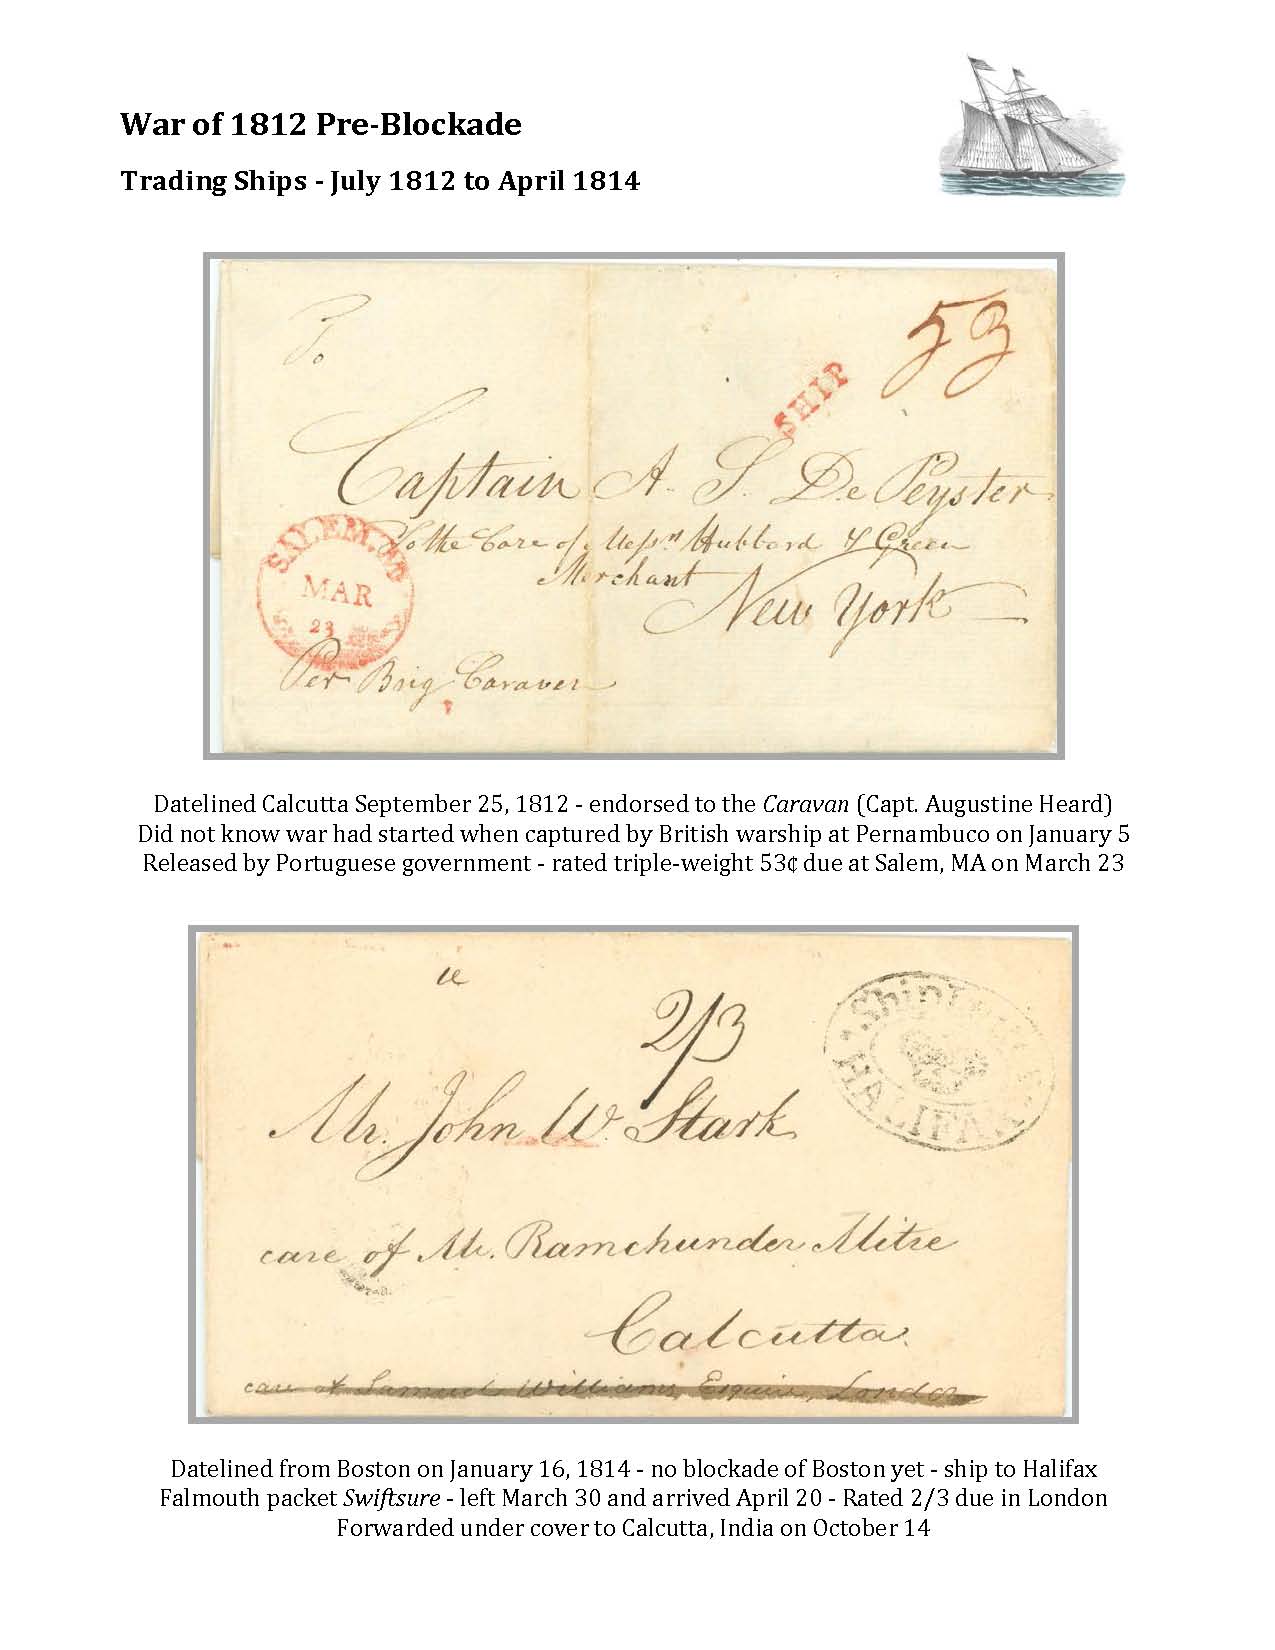 War of 1812 Pre-Blockade
Trading Ships - July 1812 to April 1814
To
53
SHIP
Captain A. S. De Peyster
To the Care of Messrs Hubbard & Green
Merchant
New York
SALEM. MS
MAR
23
Per Brig Caravan
Datelined Calcutta September 25, 1812 - endorsed to the Caravan (Capt. Augustine Heard)
Did not know war had started when captured by British warship at Pernambuco on January 5
Released by Portuguese government - rated triple-weight 53¢ due at Salem, MA on March 23
2/3
Ship
HALIFAX
Mr. John W. Stark
care of Mr. Ramchunder Mitre
Calcutta.
care of Samuel Williams, Esquire, London
Datelined from Boston on January 16, 1814 - no blockade of Boston yet - ship to Halifax
Falmouth packet Swiftsure - left March 30 and arrived April 20 - Rated 2/3 due in London
Forwarded under cover to Calcutta, India on October 14